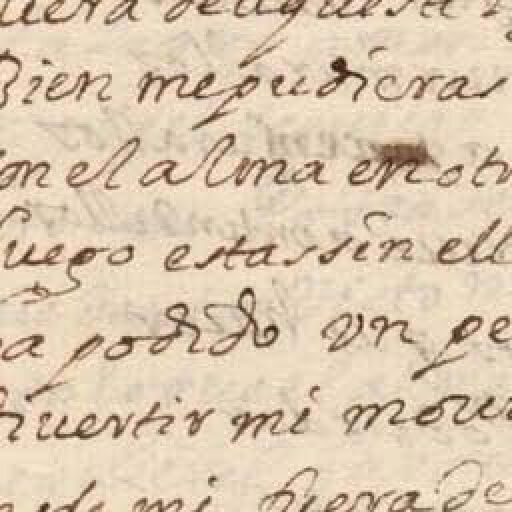 uera de aquesa
Bien me pudieras
Con el alma en otr
luego estas sin ell
ha podido vn pe
diuertir mi mour
mi fuera de